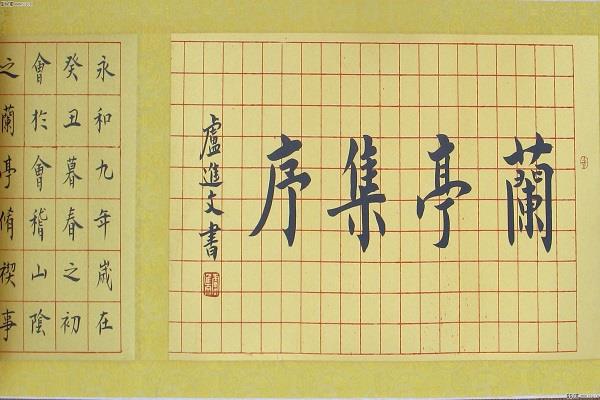 蘭亭集序
盧進文書
永和九年歲在
癸丑暮春之初
會於會稽山陰
之蘭亭脩禊事